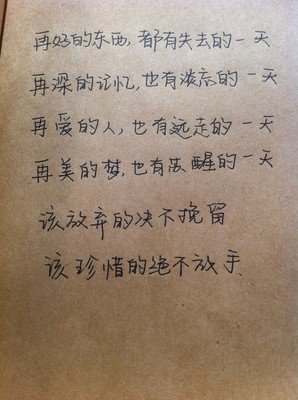 再好的东西,都有失去的一天
再深的记忆,也有淡忘的一天
再爱的人,也有远走的一天
再美的梦,也有苏醒的一天
该放弃的决不挽留
该珍惜的绝不放手